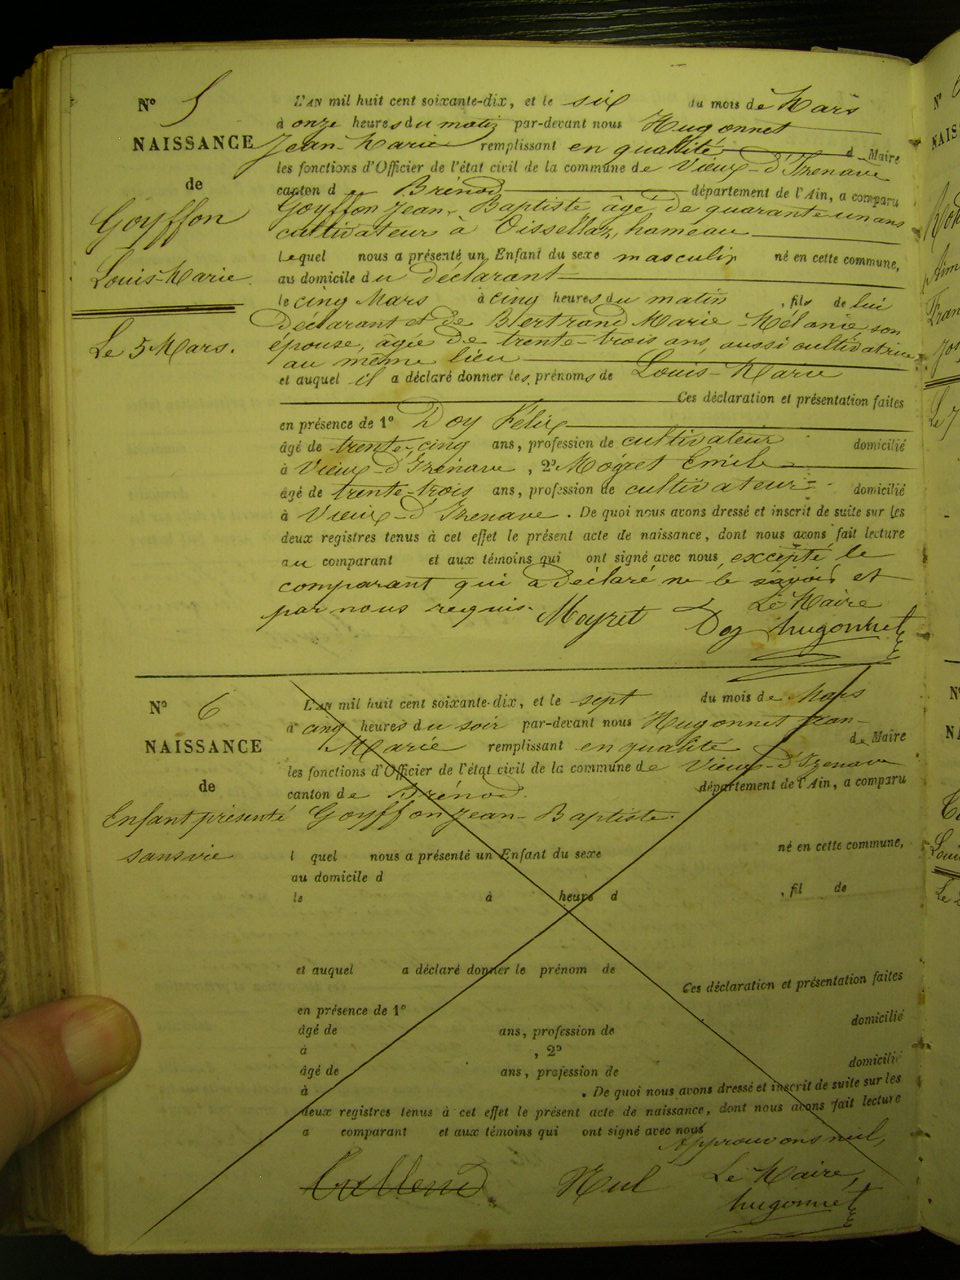 N° 5
NAISSANCE
de
Goyffon
Louis-Marie
Le 5 Mars.
L'AN mil huit cent soixante-dix, et le six du mois de Mars
à onze heures du matin par-devant nous Hugonnet
Jean-Marie remplissant en qualité d Maire
les fonctions d'Officier de l'état civil de la commune de Vieux-d'Izenave
canton de Brénod département de l'Ain, a comparu
Goyffon Jean-Baptiste âgé de quarante un ans
cultivateur à Oisellaz, hameau
Lequel nous a présenté un Enfant du sexe masculin né en cette commune,
au domicile du déclarant
le cinq Mars à cinq heures du matin, fils de lui
déclarant et de Bertrand Marie-Mélanie, son
épouse, agée de trente-trois ans, aussi cultivatrice
au même lieu
et auquel il a déclaré donner les prénoms de Louis-Marie
Ces déclaration et présentation faites
en présence de 1° Doy Félix
âgé de trente-cinq ans, profession de cultivateur domicilié
à Vieux-d'Izenave, 2° Meyret Emile
âgé de trente-trois ans, profession de cultivateur domicilié
à Vieux-d'Izenave. De quoi nous avons dressé et inscrit de suite sur les
deux registres tenus à cet effet le présent acte de naissance, dont nous avons fait lecture
au comparant et aux témoins qui ont signé avec nous, excepté le
comparant qui a déclaré ne le savoir et
par nous requis. Le Maire
Meyret Doy hugonnet
N° 6
NAISSANCE
de
Enfant présenté
sans vie
L'AN mil huit cent soixante-dix, et le sept du mois de Mars
à cinq heures du soir par-devant nous Hugonnet Jean-
Marie remplissant en qualité de Maire
les fonctions d'Officier de l'état civil de la commune de Vieux-d'Izenave
canton de Brénod. département de l'Ain, a comparu
Goyffon Jean-Baptiste
l quel nous a présenté un Enfant du sexe né en cette commune,
au domicile d
le à heure d , fil de
et auquel a déclaré donner le prénom de
Ces déclaration et présentation faites
en présence de 1°
âgé de ans, profession de domicilié
à , 2°
âgé de ans, profession de domicilié
à . De quoi nous avons dressé et inscrit de suite sur les
deux registres tenus à cet effet le présent acte de naissance, dont nous avons fait lecture
a comparant et aux témoins qui ont signé avec nous
Approuvons nul,
Nul Le Maire,
hugonnet